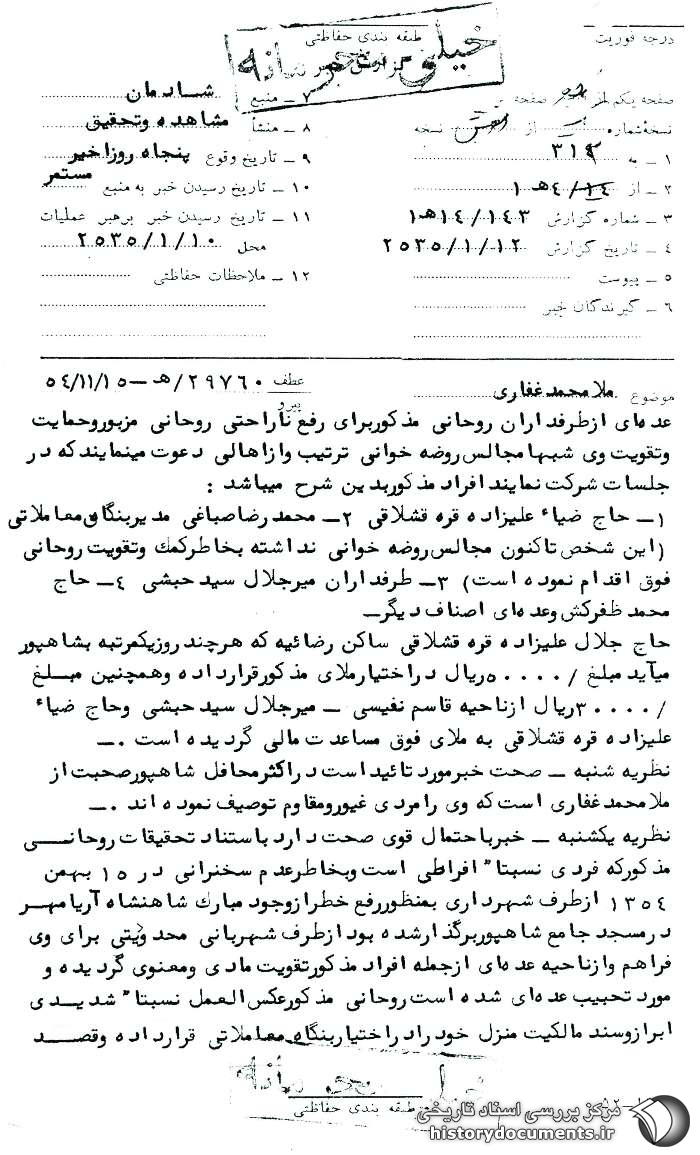 درجه فوریت
طبقه بندی حفاظتی
خیلی محرمانه
گزارش خبر
صفحه یکم از صفحه
نسخه شماره از نسخه
۱ - به ۳۱۲
۲ - از ۱۴/۴هـ۱
۳ - شماره گزارش ۱۴/۱۴۳هـ۱
۴ - تاریخ گزارش ۲۵۳۵/۱/۱۲
۵ - پیوست
۶ - گیرندگان خبر
۷ - منبع شادمان
۸ - منشأ مشاهده وتحقیق
۹ - تاریخ وقوع پنجاه روزاخیر
مستمر
۱۰ - تاریخ رسیدن خبر به منبع
۱۱ - تاریخ رسیدن خبر برهبر عملیات
محل ۲۵۳۵/۱/۱۰
۱۲ - ملاحظات حفاظتی
موضوع ملامحمدغفاری
عطف ۲۹۷۶۰/هـ-۵۴/۱۱/۱۵
پیرو
عده‌ای ازطرفداران روحانی مذکوربرای رفع ناراحتی روحانی مزبوروحمایت
وتقویت وی شبها مجالس روضه خوانی ترتیب وازاهالی دعوت مینمایندکه در
جلسات شرکت نمایند افراد مذکوربدین شرح میباشد :
۱- حاج ضیاء علیزاده قره قشلاقی ۲- محمدرضاصباغی مدیربنگاه معاملاتی
(این شخص تاکنون مجالس روضه خوانی نداشته بخاطرکمك وتقویت روحانی
فوق اقدام نموده است) ۳- طرفداران میرجلال سیدحبشی ۴- حاج
محمد ظفرکش وعده‌ای اصناف دیگر-
حاج جلال علیزاده قره قشلاقی ساکن رضائیه که هرچند روزیکمرتبه بشاهپور
میآید مبلغ /۵۰۰۰۰ریال دراختیارملای مذکورقرارداده وهمچنین مبلغ
/۳۰۰۰۰ریال ازناحیه قاسم نفیسی - میرجلال سیدحبشی وحاج ضیاء
علیزاده قره قشلاقی به ملای فوق مساعدت مالی گردیده است .-
نظریه شنبه - صحت خبرمورد تائیداست دراکثرمحافل شاهپورصحبت از
ملامحمدغفاری است که وی رامردی غیورومقاوم توصیف نموده اند .-
نظریه یکشنبه - خبرباحتمال قوی صحت دارد باستناد تحقیقات روحانی
مذکورکه فردی نسبتاً افراطی است وبخاطرعدم سخنرانی در ۱۵ بهمن
۱۳۵۴ ازطرف شهرداری بمنظوررفع خطرازوجود مبارك شاهنشاه آریامهر
درمسجد جامع شاهپوربرگذارشده بودازطرف شهربانی محدودیتی برای وی
فراهم وازناحیه عده‌ای ازجمله افراد مذکورتقویت مادی ومعنوی گردیده و
مورد تحبیب عده‌ای شده است روحانی مذکورعکس العمل نسبتاً شدیدی
ابرازوسند مالکیت منزل خودرادراختیاربنگاه معاملاتی قرارداده وقصد
خیلی محرمانه
طبقه بندی حفاظتی
مرکز بررسی اسناد تاریخی
historydocuments.ir